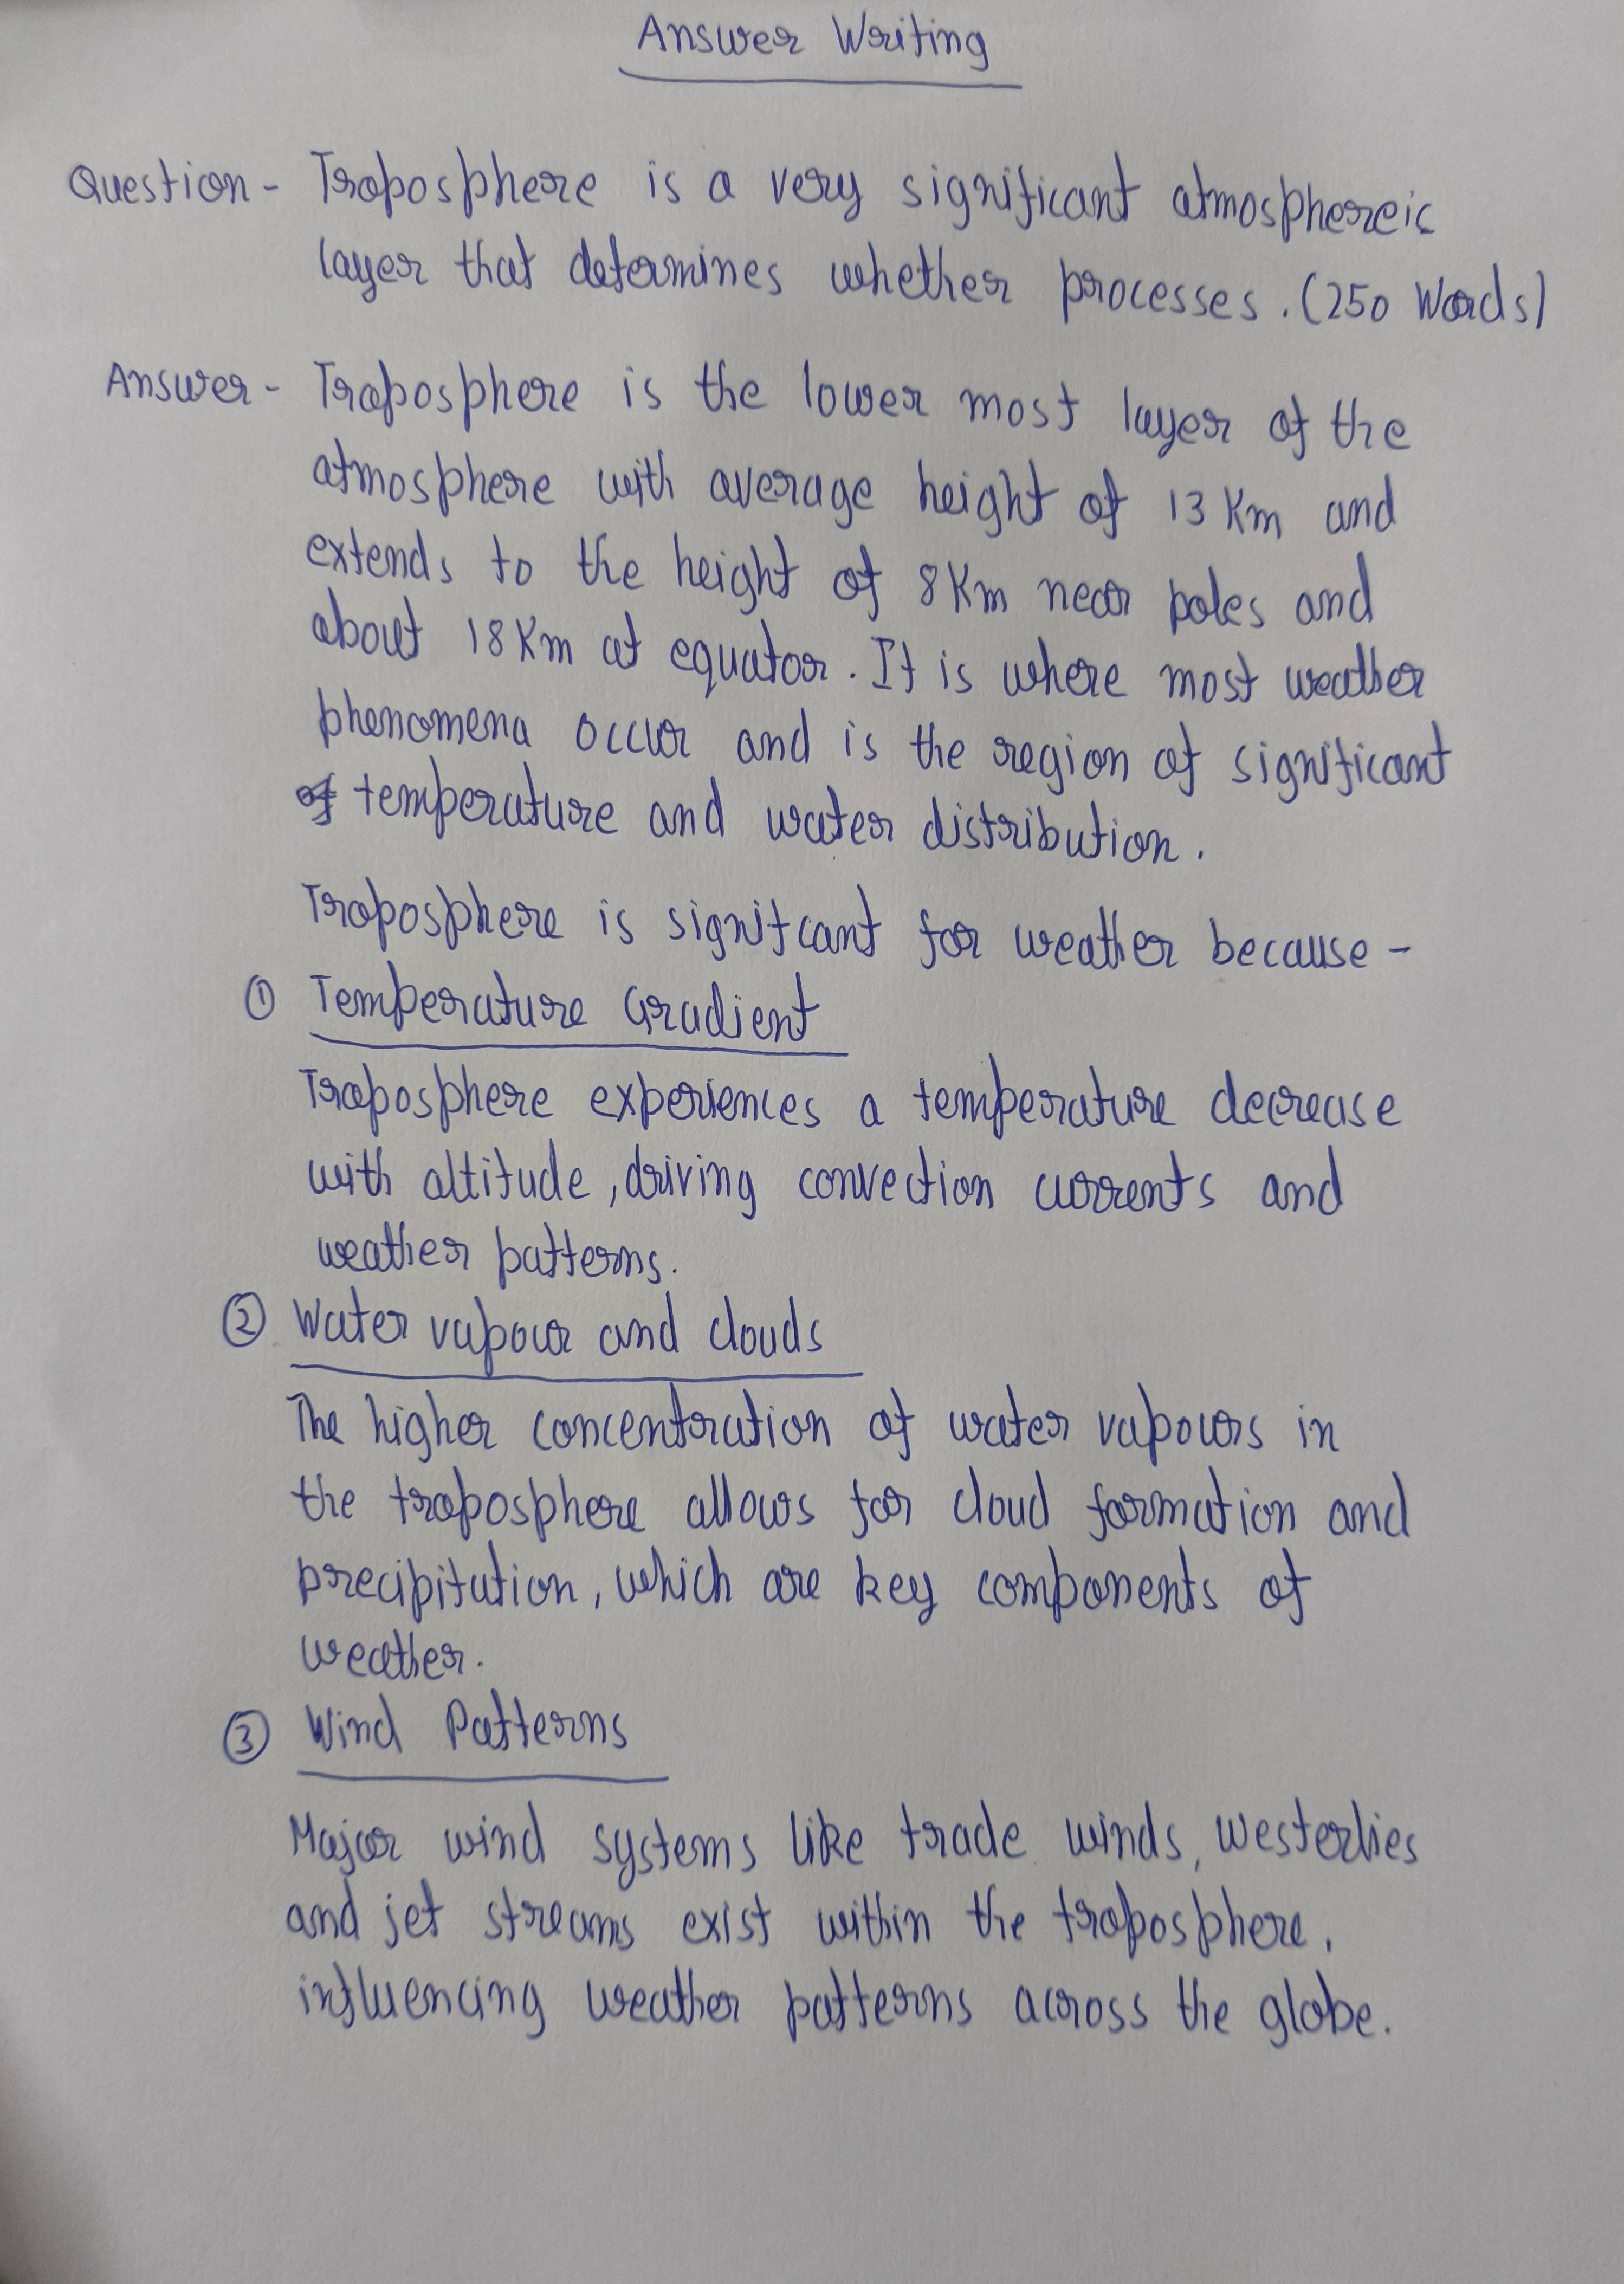 Answer Writing
Question - Troposphere is a very significant atmosphereic
layer that determines whether processes. (250 Words)
Answer - Troposphere is the lower most layer of the
atmosphere with average height of 13 Km and
extends to the height of 8 Km near poles and
about 18 Km at equator. It is where most weather
phenomena occur and is the region of significant
of temperature and water distribution.
Troposphere is signitcant for weather because -
① Temperature Gradient
Troposphere experiences a temperature decrease
with altitude, driving convection currents and
weather patterns.
② Water vapour and clouds
The higher concentration of water vapours in
the troposphere allows for cloud formation and
precipitation, which are key components of
weather.
③ Wind Patterns
Major wind systems like trade winds, westerlies
and jet streams exist within the troposphere,
influencing weather patterns across the globe.